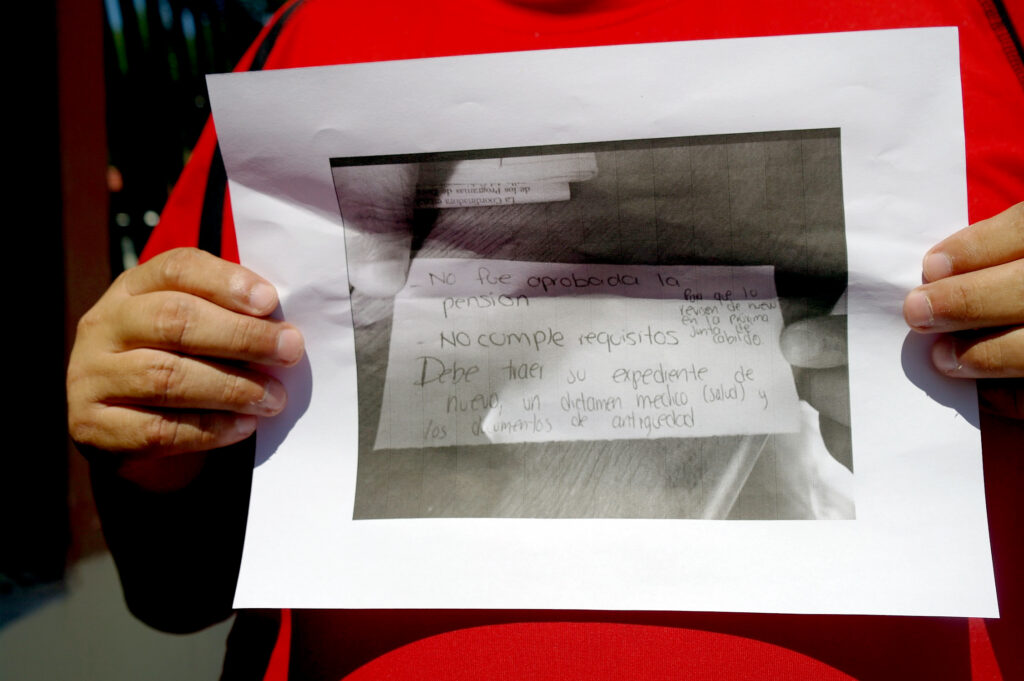 La Coordinadora
de los Programas de
- No fue aprobada la
pensión
- No cumple requisitos
Para que lo
revisen de nuevo
en la próxima
junta de
cabildo.
Debe traer su expediente de
nuevo, un dictamen medico (salud) y
los documentos de antiguedad